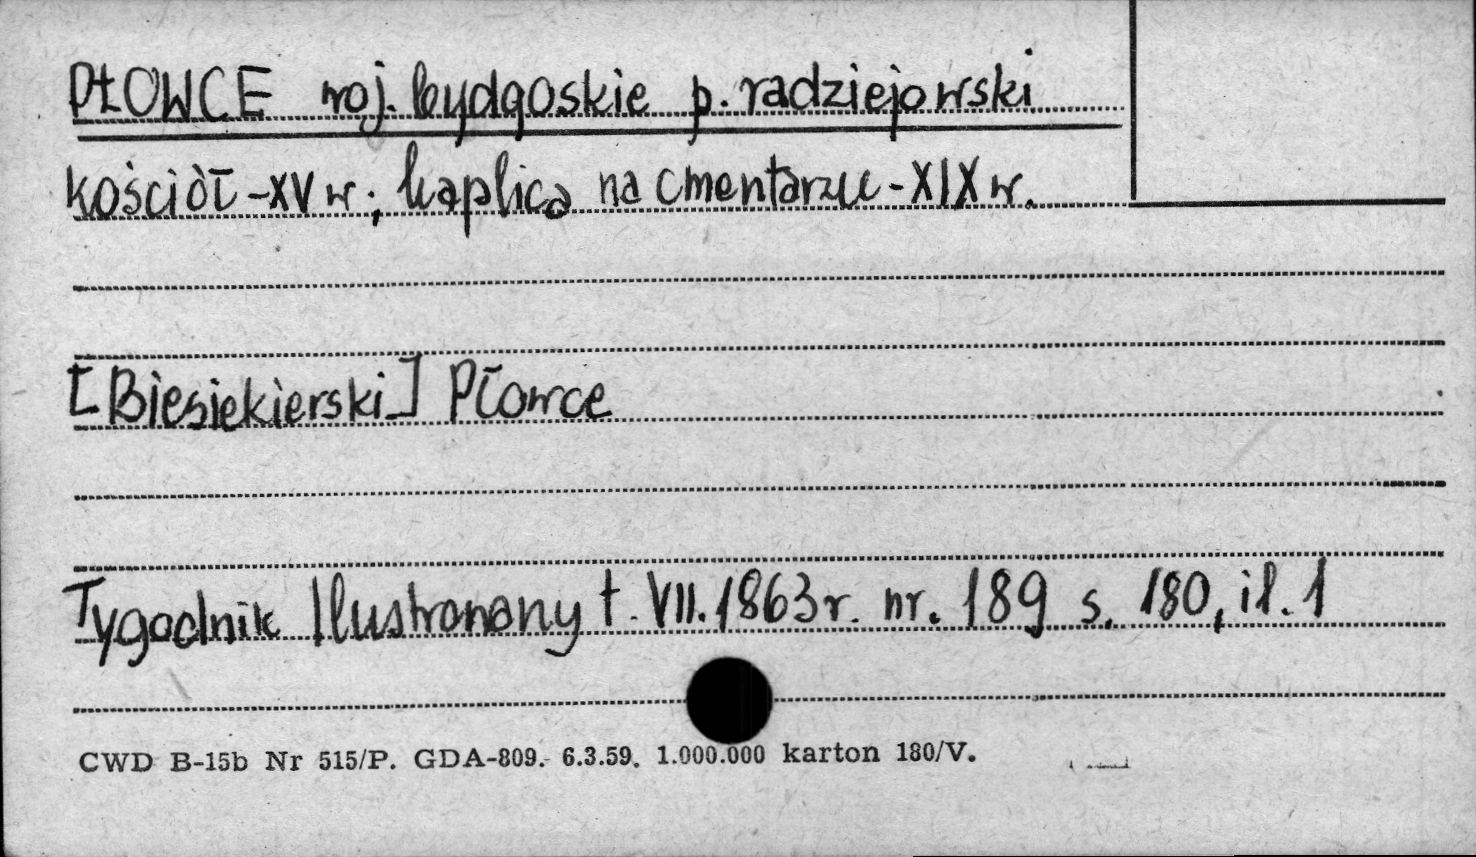 PŁOWCE woj. bydgoskie p. radziejowski
kościół - XV w.; kaplica na cmentarzu - XIX w.
[Biesiekierski] Płowce
Tygodnik Ilustrowany t. VII. 1863r. nr. 189 s. 180, il. 1
CWD B-15b Nr 515/P. GDA-809. 6.3.59. 1.000.000 karton 180/V.